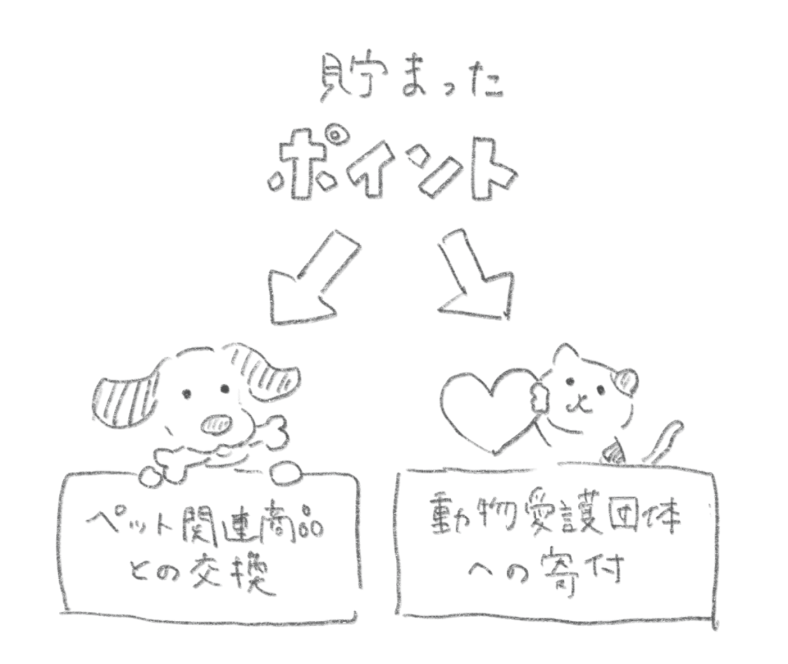 貯まった
ポイント
ペット関連商品
との交換
動物愛護団体
への寄付